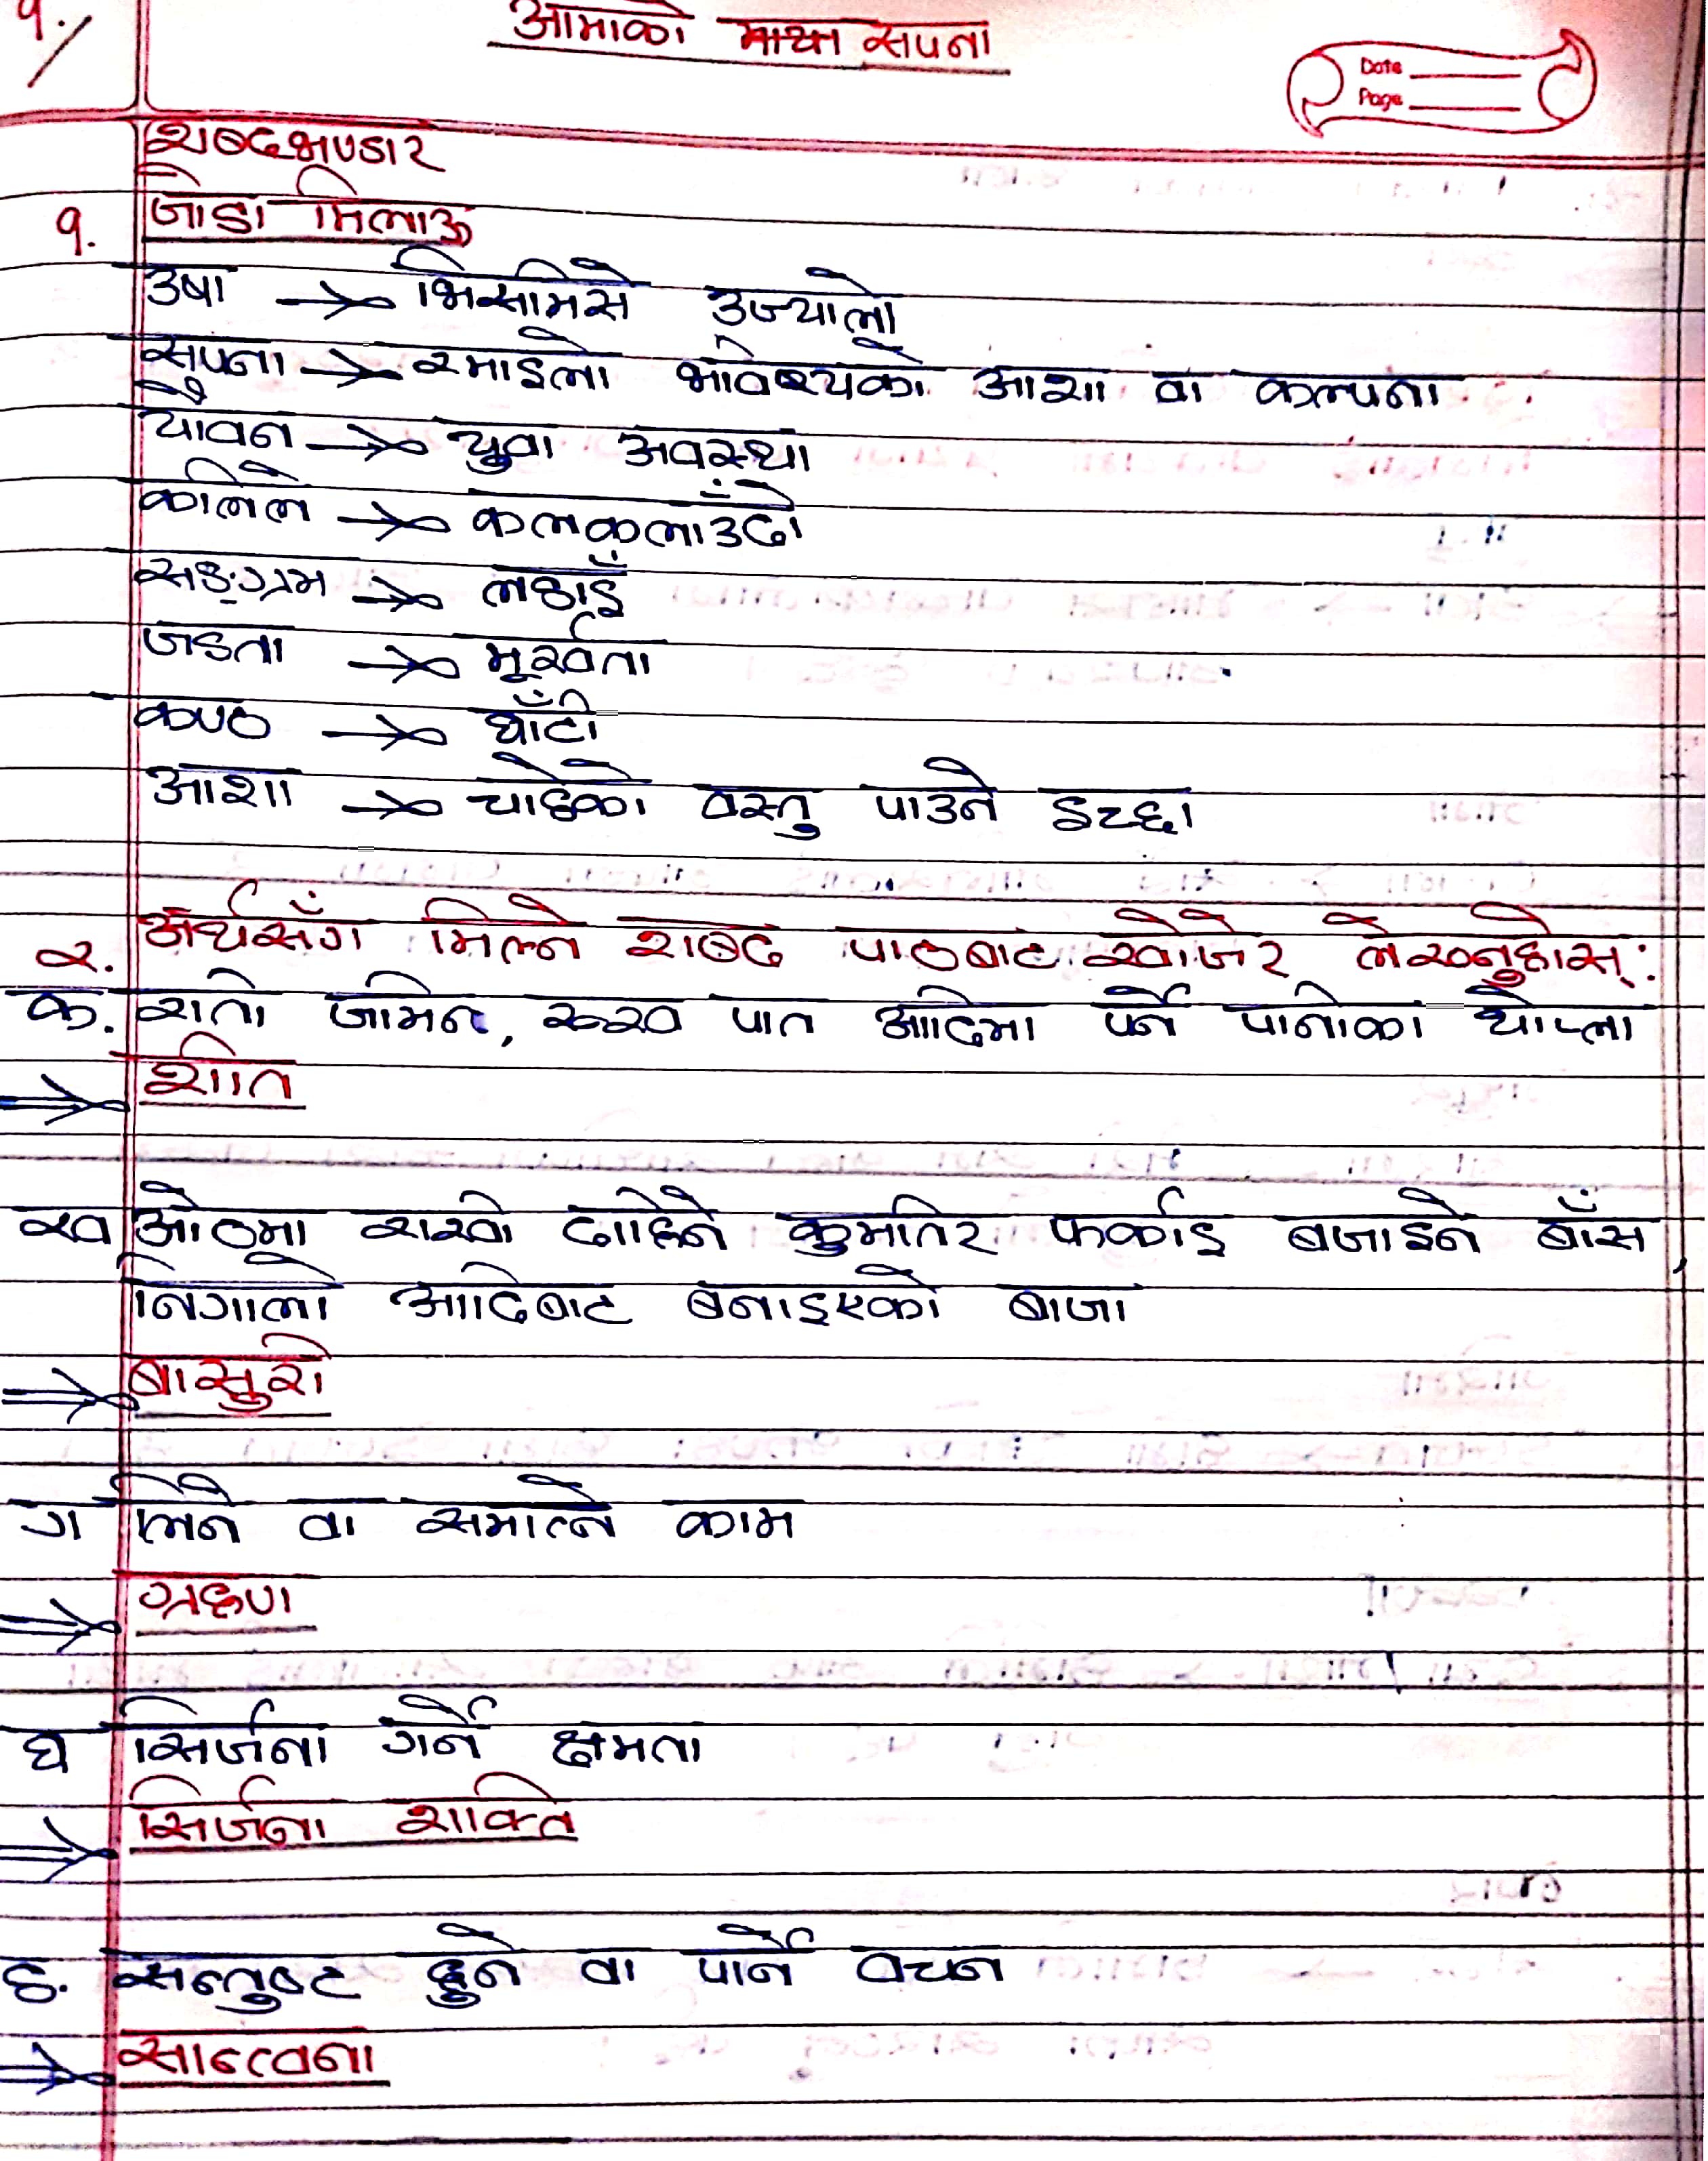 १./
आमाको सपना
Date
Page
शब्दभण्डार
१. जोडा मिलाऊ
उषा → मिसमिसे उज्यालो
सपना → रमाइलो भविष्यको आशा वा कल्पना
यौवन → युवा अवस्था
कलिलो → कलकलाउँदो
सङ्ग्राम → लडाइँ
जडता → मूर्खता
कण्ठ → घाँटी
आशा → चाहेको वस्तु पाउने इच्छा
२. अर्थसँग मिल्ने शब्द पाठबाट खोजेर लेख्नुहोस्:
क. राती जमिन, रुख पात आदिमा पर्ने पानीका थोप्ला
⇒ शीत
ख ओठमा राखी दाहिने कुमतिर फर्काइ बजाइने बाँस,
निगालो आदिबाट बनाइएको बाजा
⇒ बासुरी
ग लिने वा समात्ने काम
⇒ ग्रहण
घ सिर्जना गर्ने क्षमता
⇒ सिर्जना शक्ति
ङ. सन्तुष्ट हुने वा पार्ने वचन
⇒ सान्त्वना